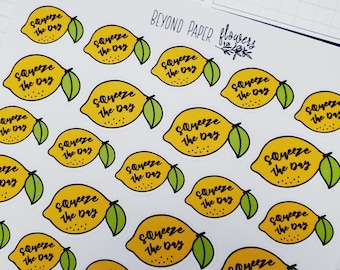 BEYOND PAPER
flowers
SQUEEZE
THE DAY
SQUEEZE
THE DAY
SQUEEZE
THE DAY
SQUEEZE
THE DAY
SQUEEZE
THE DAY
SQUEEZE
THE DAY
SQUEEZE
THE DAY
SQUEEZE
THE DAY
SQUEEZE
THE DAY
SQUEEZE
THE DAY
SQUEEZE
THE DAY
SQUEEZE
THE DAY
SQUEEZE
THE DAY
SQUEEZE
THE DAY
SQUEEZE
THE DAY
SQUEEZE
THE DAY
SQUEEZE